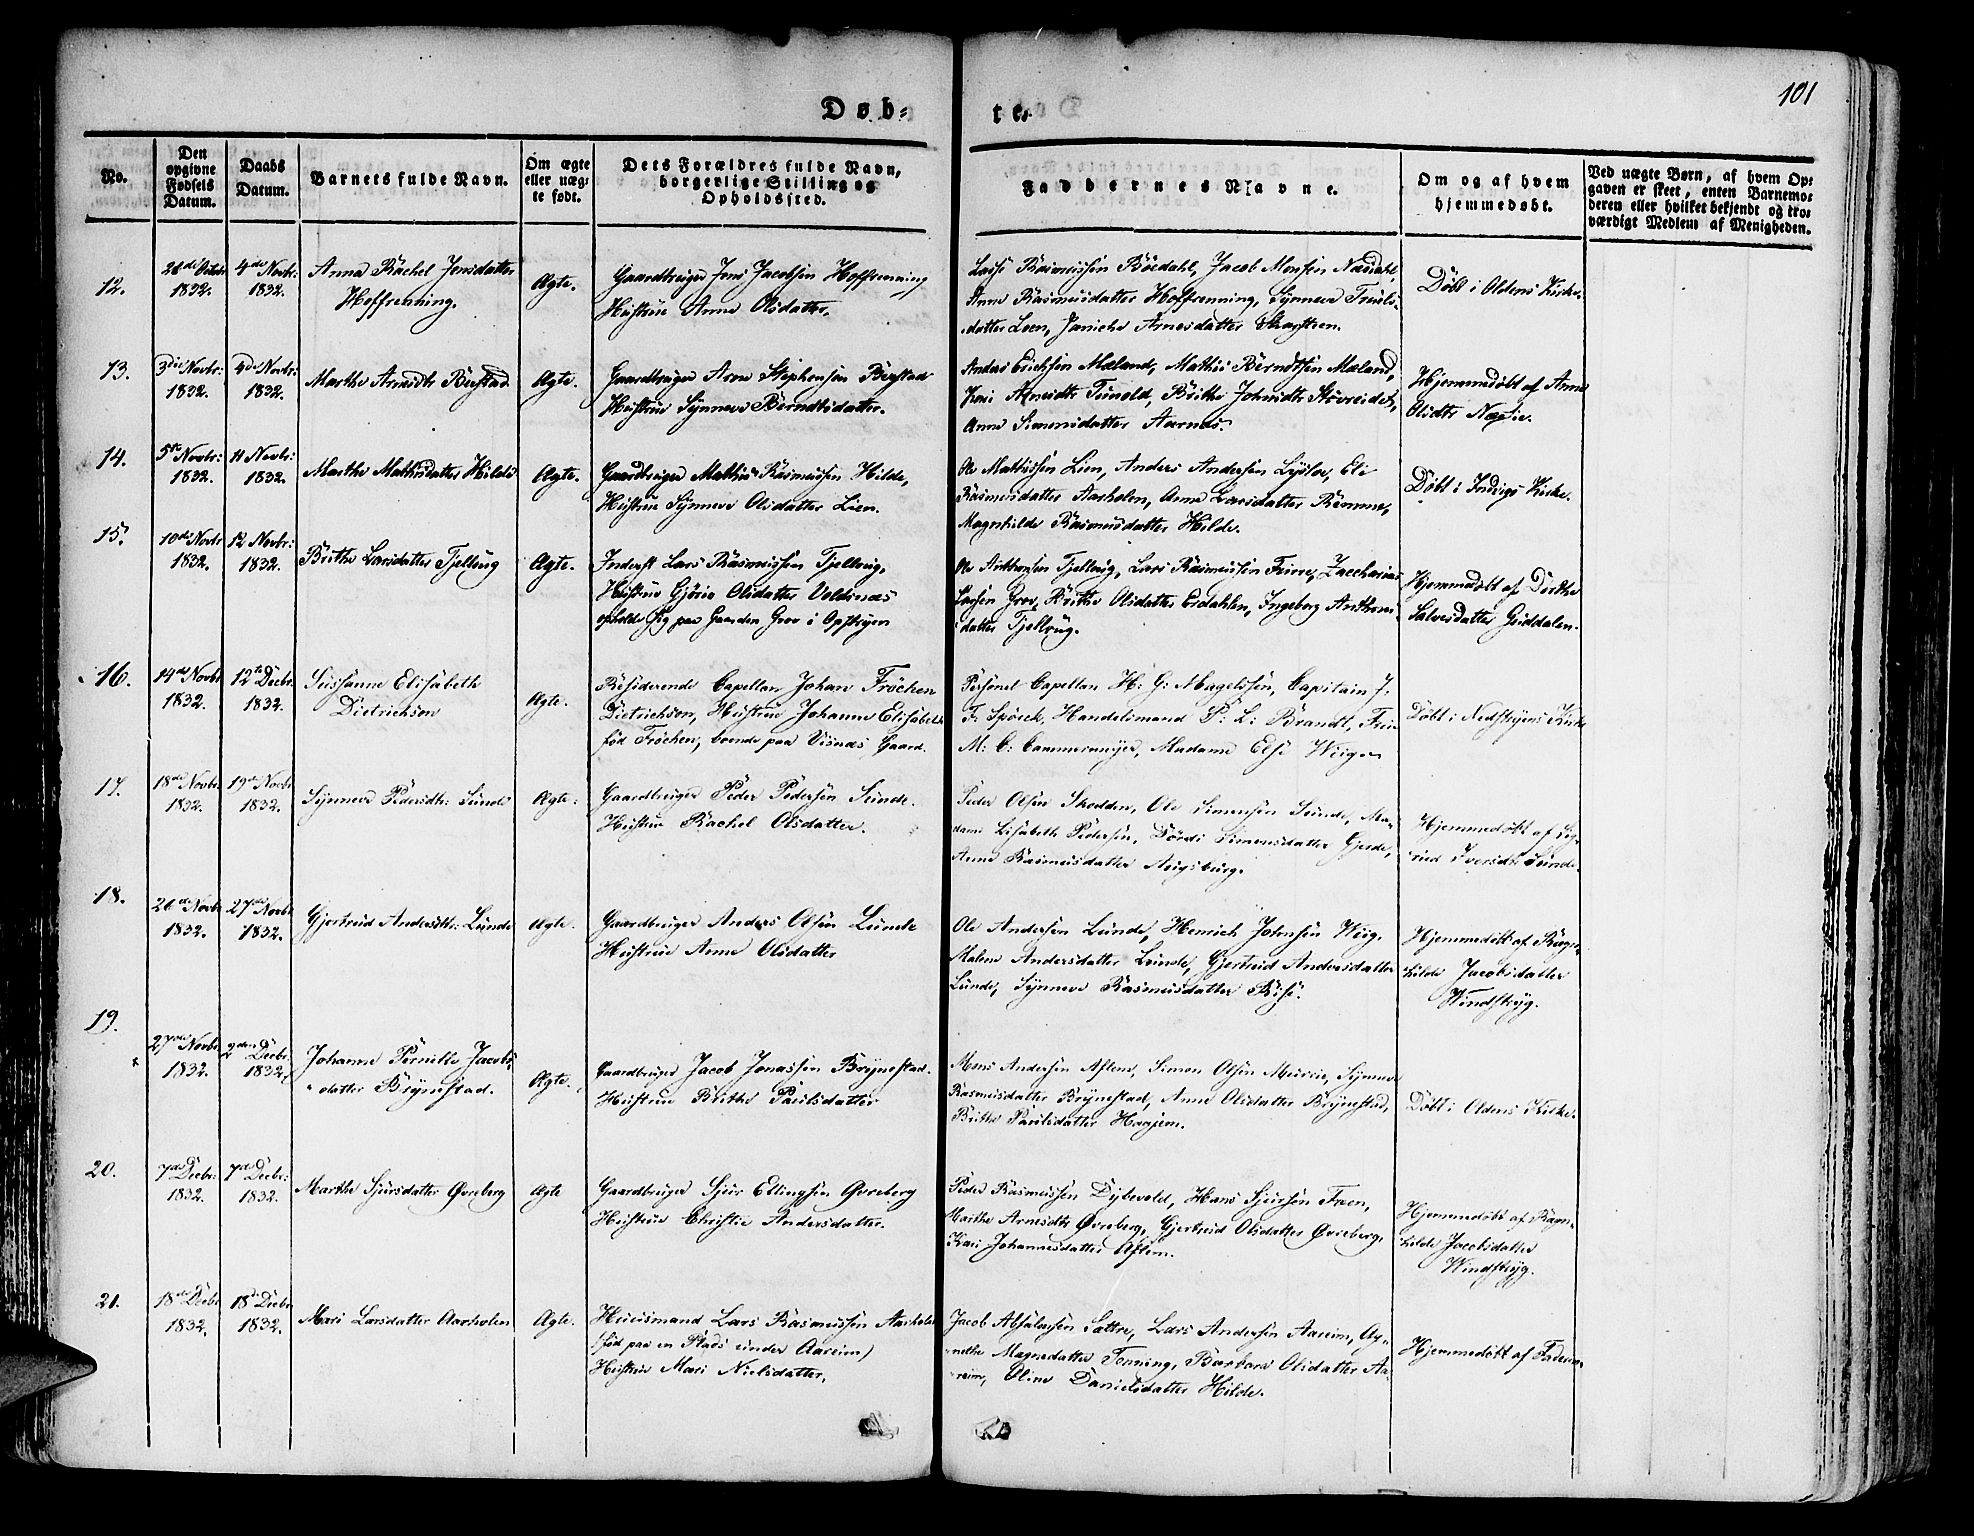 101
Døb-
te.
No.
Den
opgivne
Fødsels
Datum.
Daabs
Datum.
Barnets fulde Navn.
Om ægte
eller uæg-
te født.
Dets Forældres fulde Navn,
borgerlige Stilling og
Opholdssted.
Faddernes Navne.
Om og af hvem
hjemmedøbt.
Ved uægte Børn, af hvem Op-
gaven er skeet, enten Barnemo-
deren eller hvilket bekjendt og tro-
værdigt Medlem af Menigheden.
12.
28de Octobr
1832.
4de Novbr:
1832.
Anna Rachel Jensdatter
Hoffrenning.
Ægte.
Gaardbruger Jens Jacobsen Hoffrenning
Hustrue Anne Olsdatter.
Lasse Rasmussen Bøedahl, Jacob Monsen Næsdahl,
Anne Rasmusdatter Hoffrenning, Synneve Truls-
datter Loen, Janiche Arnesdatter
Døbt i Oldens Kirke.
13.
3die Novbr:
1832.
4de Novbr:
1832.
Marthe Arnesdtr
Ægte.
Gaardbruger Arne Stephensen
Hustrue Synneve Berndtsdatter.
Anders Erichsen Mæland, Mathis Berndtsen Mæland,
Kari Arnesdtr Tunold, Brithe Johnsdtr Støvreidet,
Anne Simonsdatter Aarnes.
Hjemmedøbt af Anne
Olsdtr
14.
5te Novbr:
1832.
11 Novbr:
1832.
Marthe Mathisdatter Hilde
Ægte.
Gaardbruger Mathis Rasmussen Hilde,
Hustrue Synneve Olsdatter Lien.
Ole Mathissen Lien, Anders Andersen Lysloe, Eli
Rasmusdatter Aarholen, Anne Larsdatter Rømme,
Magnhilde Rasmusdatter Hilde.
Døbt i Indvigs Kirke.
15.
10de Novbr
1832.
12 Novbr:
1832.
Brithe Larsdatter Tjellaug
Ægte.
Inderst Lars Rasmussen Tjellaug,
Hustrue Gjørie Olsdatter Voldsnæs
opholde sig paa Gaarden Grov i Opstryen
Ole Anthonsen Tjellaug, Lars Rasmussen Frøve, Zaccharias
Larsen Grov, Brithe Olsdatter Erdahlen, Ingeborg Anthons-
datter Tjellaug.
Hjemmedøbt af Dorthe
Salvesdatter Guddalen.
16.
14de Novbr
1832.
12te Decbr.
1832.
Susanne Elisabeth
Dietrichson
Ægte.
Residerende Capellan Johan Frøchen
Dietrichson, Hustrue Johanne Elisabeth
fød Frøchen, boende paa Visnæs Gaard.
Personel Capellan H: G: Magelssen, Capitain J.
F. Spørck, Handelsmand P: L: Brandt, Frue
M: C: Cammermeyer, Madame Else Wiig.
Døbt i Nedstryens Kirke
17.
18de Novbr
1832.
19de Novbr
1832.
Synneve Pedersdtr: Sunde
Ægte.
Gaardbruger Peder Pedersen Sunde.
Hustrue Rachel Olsdatter.
Peder Olsen Skodden, Ole Simensen Sunde, Ma-
dame Lisabeth Pedersen, Dordi Simensdatter Gjerde,
Anne Rasmusdatter Augsburg.
Hjemmedøbt af Sig-
ried Iversdtr Sunde
18.
26de Novbr
1832.
27de Novbr
1832.
Gjertrud Andersdtr: Lunde
Ægte.
Gaardbruger Anders Olsen Lunde
Hustrue Anne Olsdatter
Ole Andersen Lunde, Henrich Johnsen Wiig.
Malene Andersdatter Lunde, Gjertrud Andersdatter
Lunde, Synneve Rasmusdatter
Hjemmedøbt af Ragn-
hilde Jacobsdatter
Windstryg.
19.
27de Novbr
1832.
2den Decbr.
1832.
Johanne Pernille Jacobs-
datter Brynestad.
Ægte.
Gaardbruger Jacob Jonassen Brynestad.
Hustrue Brithe Paulsdatter
Mons Andersen Aflem, Simon Olsen Muurie, Synneve
Rasmusdatter Brynestad, Anne Olsdatter Brynestad,
Brithe Paulsdatter Haajem.
Døbt i Oldens Kirke.
20.
7de Decbr:
1832.
7de Decbr:
1832.
Marthe Sjursdatter Øvreberg
Ægte
Gaardbruger Sjur Ellingsen Øvreberg
Hustrue Christie Andersdatter.
Peder Rasmussen Dybevold, Hans Sjursen Faen,
Marthe Arnesdtr Øvreberg, Gjertrud Olsdatter Øvreberg,
Kari Johannesdatter Aflem.
Hjemmedøbt af Ragn-
hilde Jacobsdatter
Windstryg.
21.
18de Decbr
1832.
18de Decbr
1832.
Mari Larsdatter Aarholen
Ægte.
Huusmand Lars Rasmussen Aarholen
(fød paa en Plads under Aareim)
Hustrue Mari Nielsdatter.
Jacob Absalonsen Sættre, Lars Andersen Aareim, Ag-
nethe Magnedatter Tonning, Barbara Olsdatter Aa-
reim, Oline Danielsdatter Hilde.
Hjemmedøbt af Faderen